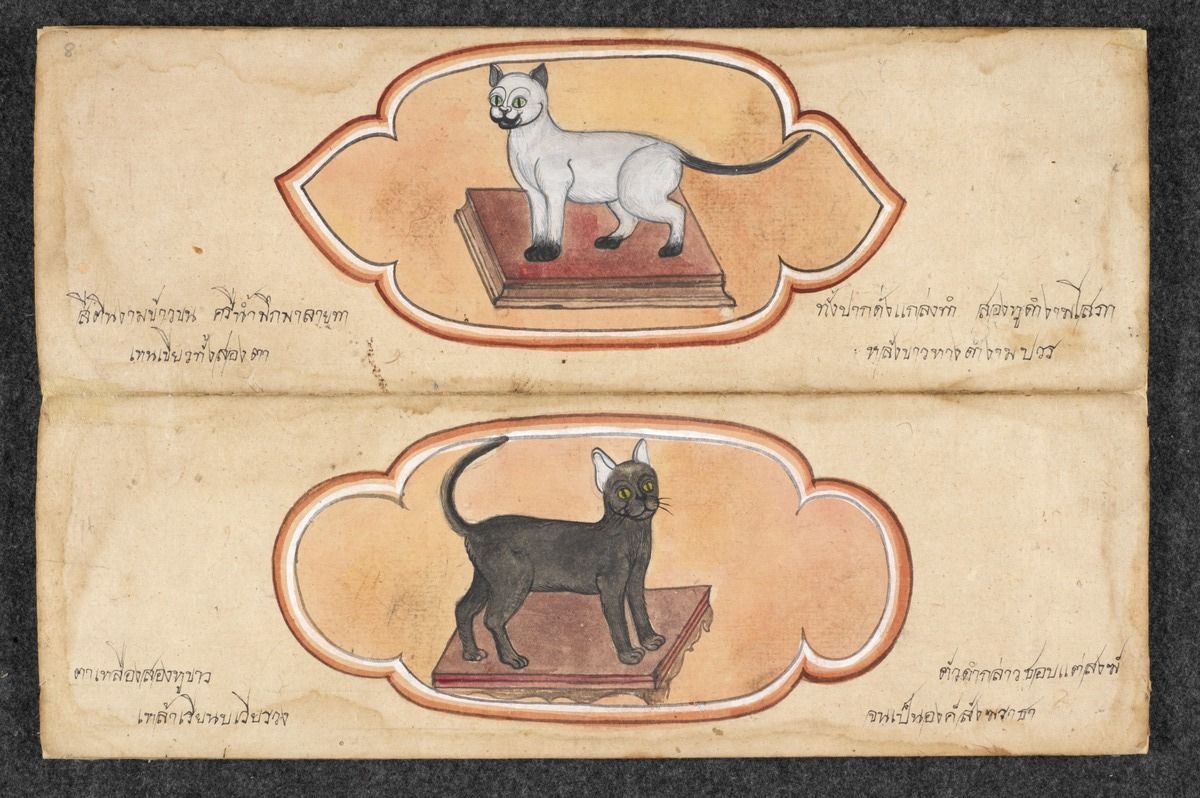 8
สี่ตีนงามขำวขน ศรีหำ้มึกพาลายทา
ทังปากดั่งแกล่งทำ สองหูดำงามโสภา
เทนเขียวทั้งสองตา
หลังขาวหางดำงามปวร
ตาเหลืองสองหูขาว
ตัวดำกล่าวชอบแต่สงฆ์
เหล้าเรียนบเวียรวง
จนเป็นองค์สังฆราชา